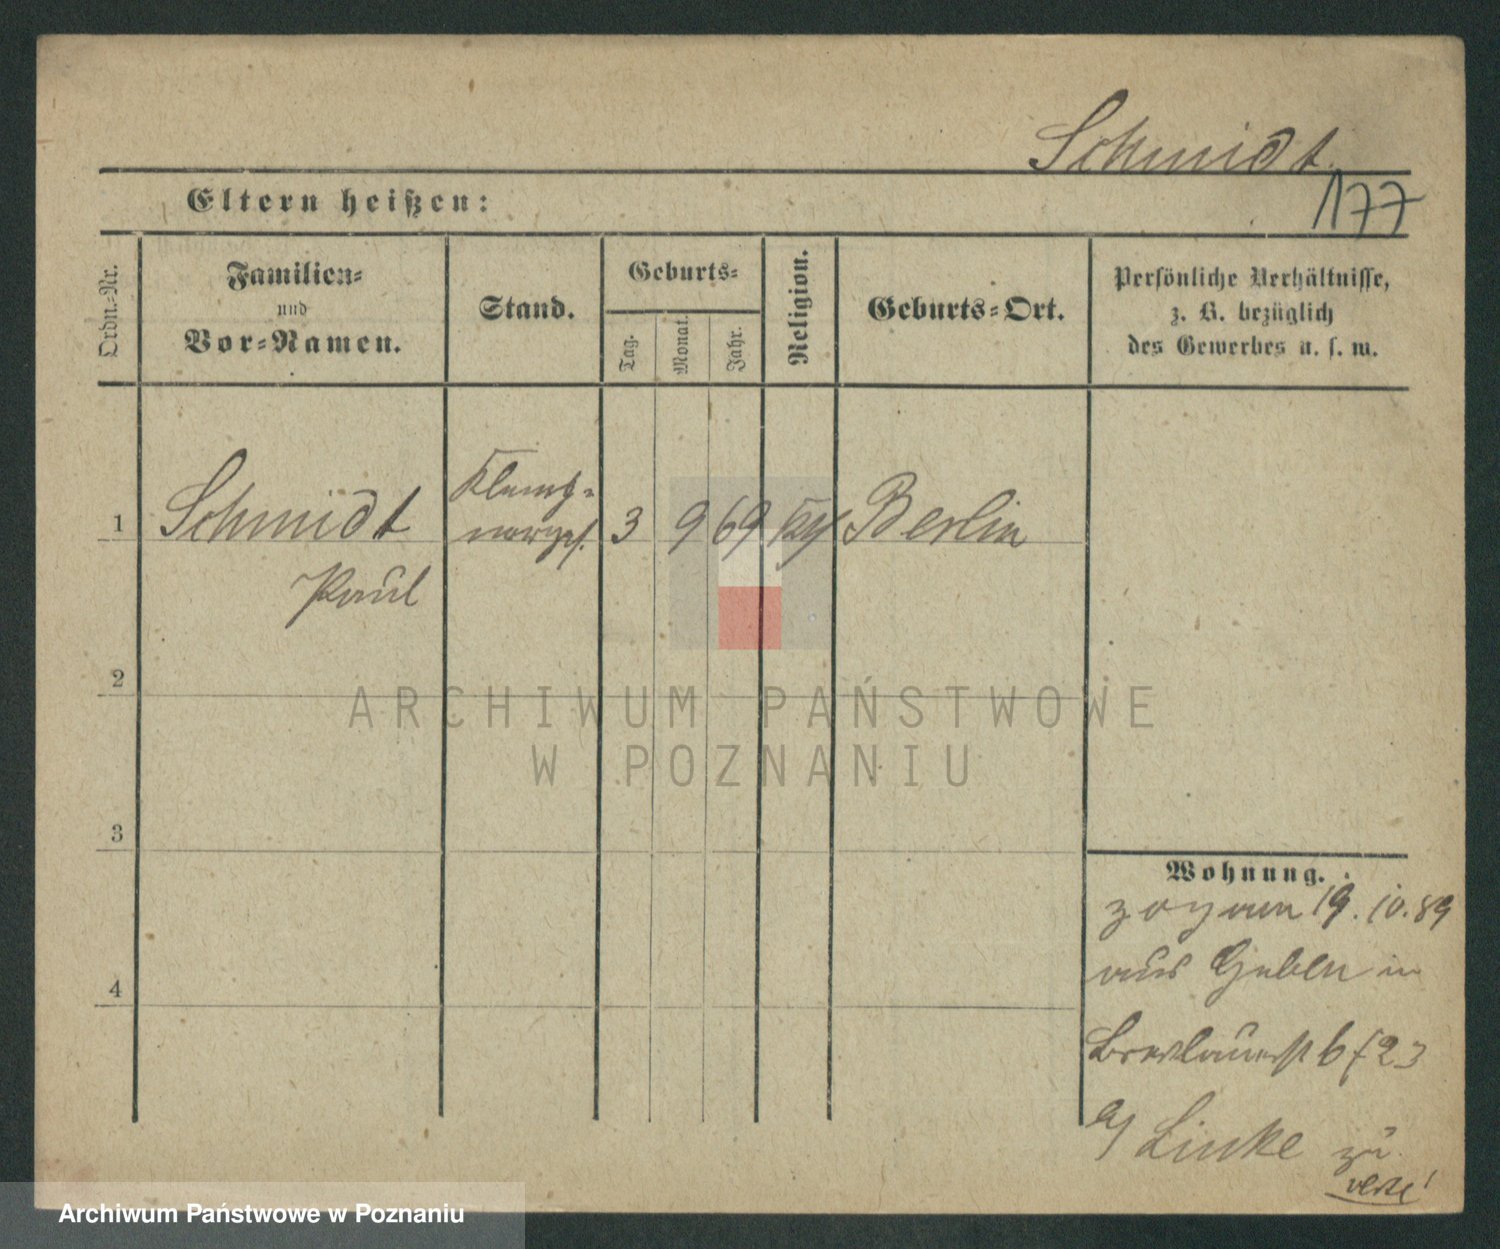 Schmidt
177
Eltern heißen:
Ordn.-Nr.
Familien-
und
Vor-Namen.
Stand.
Geburts-
Tag.
Monat.
Jahr.
Religion.
Geburts-Ort.
Persönliche Verhältnisse,
z. B. bezüglich
des Gewerbes u. s. w.
1
Schmidt
Paul
Klemp-
nerges.
3
9
69
Berlin
2
3
4
ARCHIWUM PAŃSTWOWE
W POZNANIU
Wohnung.
zog am 19.10.89
aus Guben in
Breslauerst 6 f 23
Linke zu
Archiwum Państwowe w Poznaniu